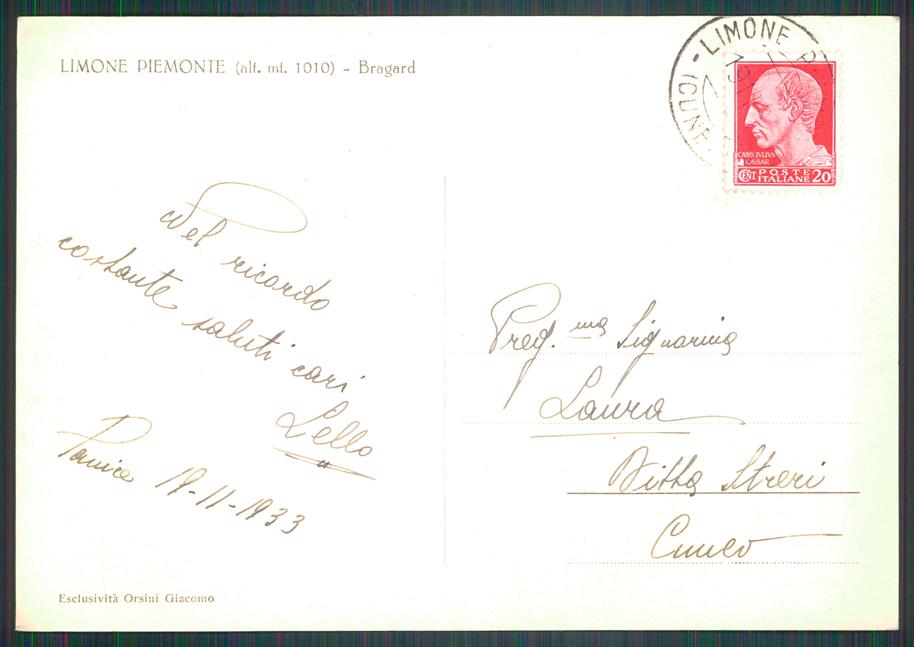 LIMONE PIEMONTE (alt. mt. 1010) - Bragard
- LIMONE P.
(CUNE
19
CAIVS IVLIVS
CÆSAR
CENT POSTE ITALIANE 20
Nel ricordo
costante saluti cari
Lello
19-11-1933
Preg.ma Signorina
Laura
Ditta Streri
Cuneo
Esclusività Orsini Giacomo